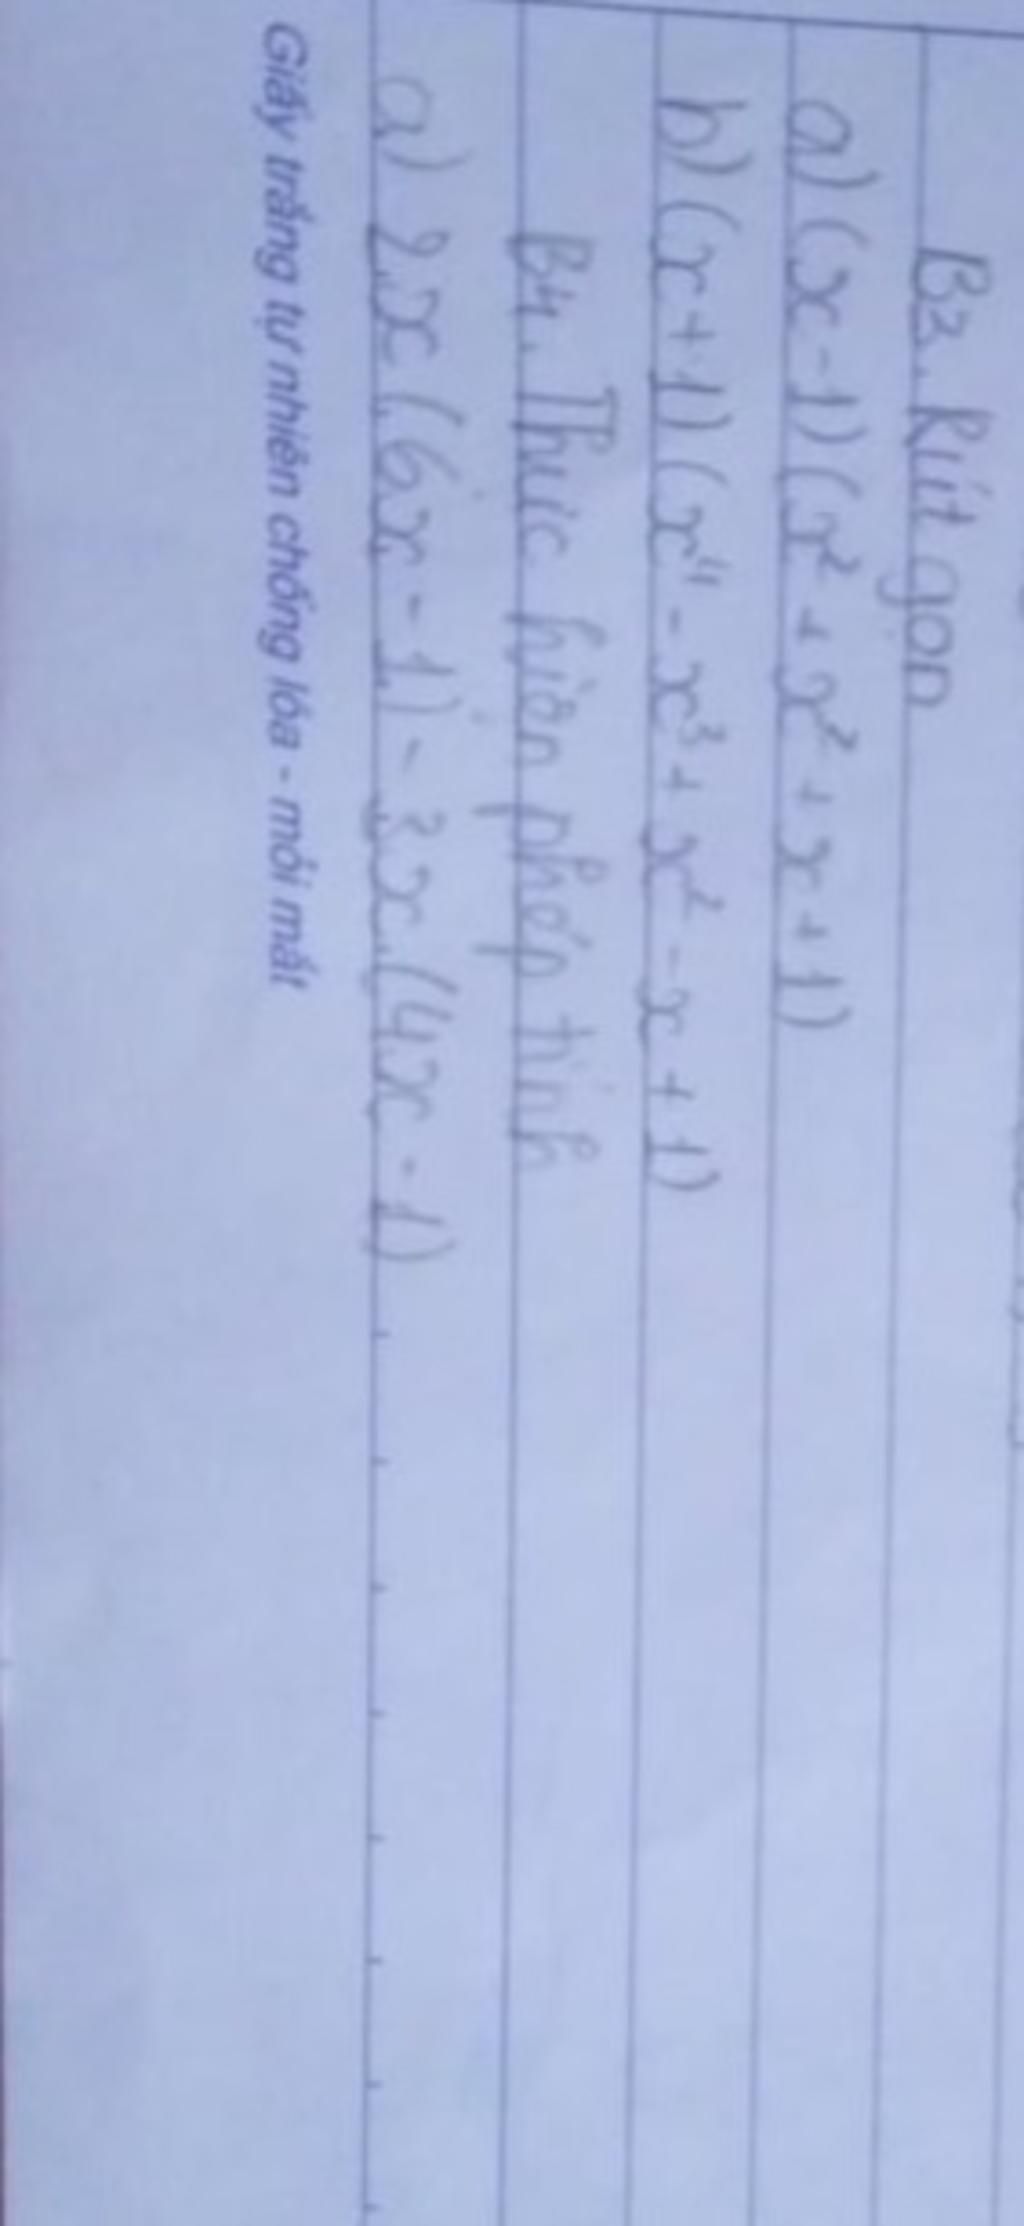 B3. Rút gọn
a) (x - 1) (x² + x² + x + 1)
b) (x + 1) (x⁴ - x³ + x² - x + 1)
B4. Thực hiện phép tính
a) 2x (6x - 1) - 3x (4x - 1)
Giấy trắng tự nhiên chống lóa - mỏi mắt